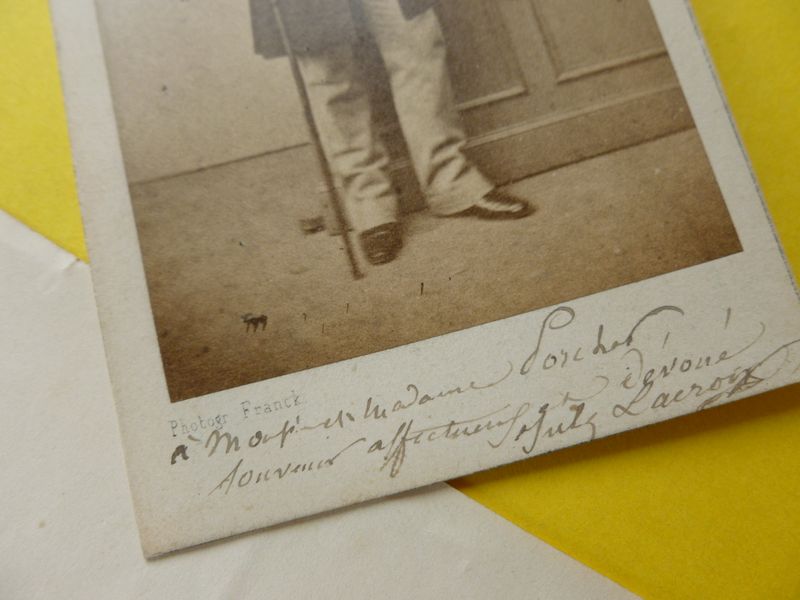 Photogr Franck
à Monsr et Madame Porcher
souvenir affectueust dévoué
Jules Lacroix